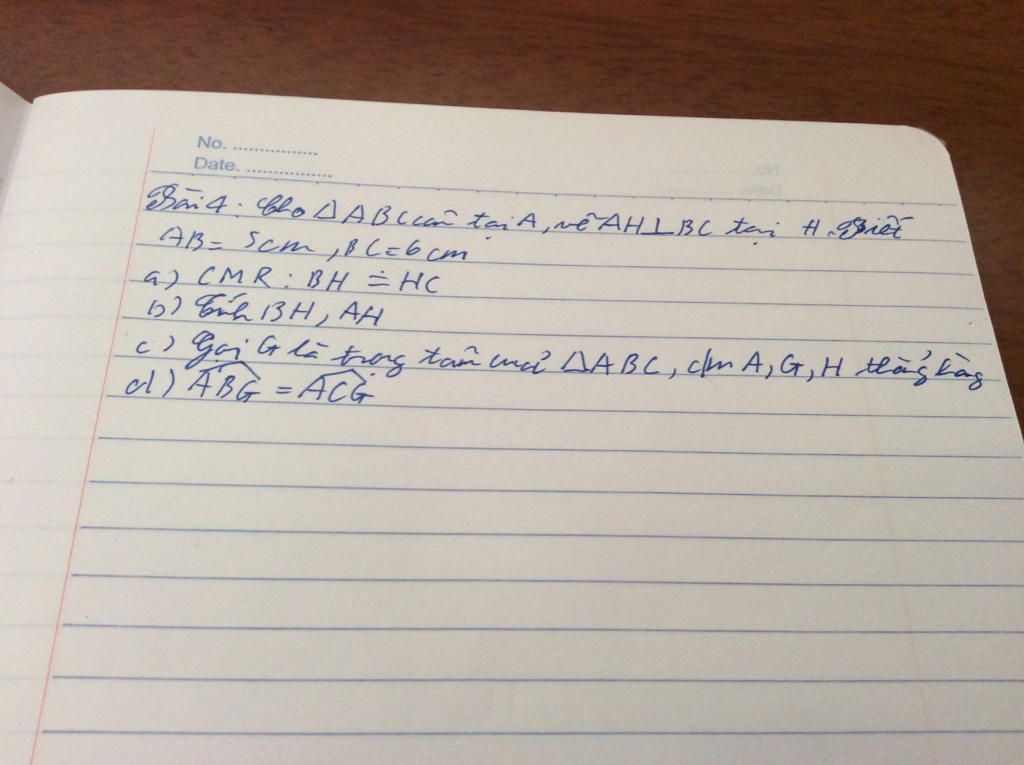 No. ................
Date. ................
Bài 4: Cho ΔABC cân tại A, vẽ AH⊥BC tại H. Biết
AB= 5cm, BC=6cm
a) CMR: BH = HC
b) Tính BH, AH
c) Gọi G là trọng tâm của ΔABC, c/m A, G, H thẳng hàng
d) ∠ABG = ∠ACG